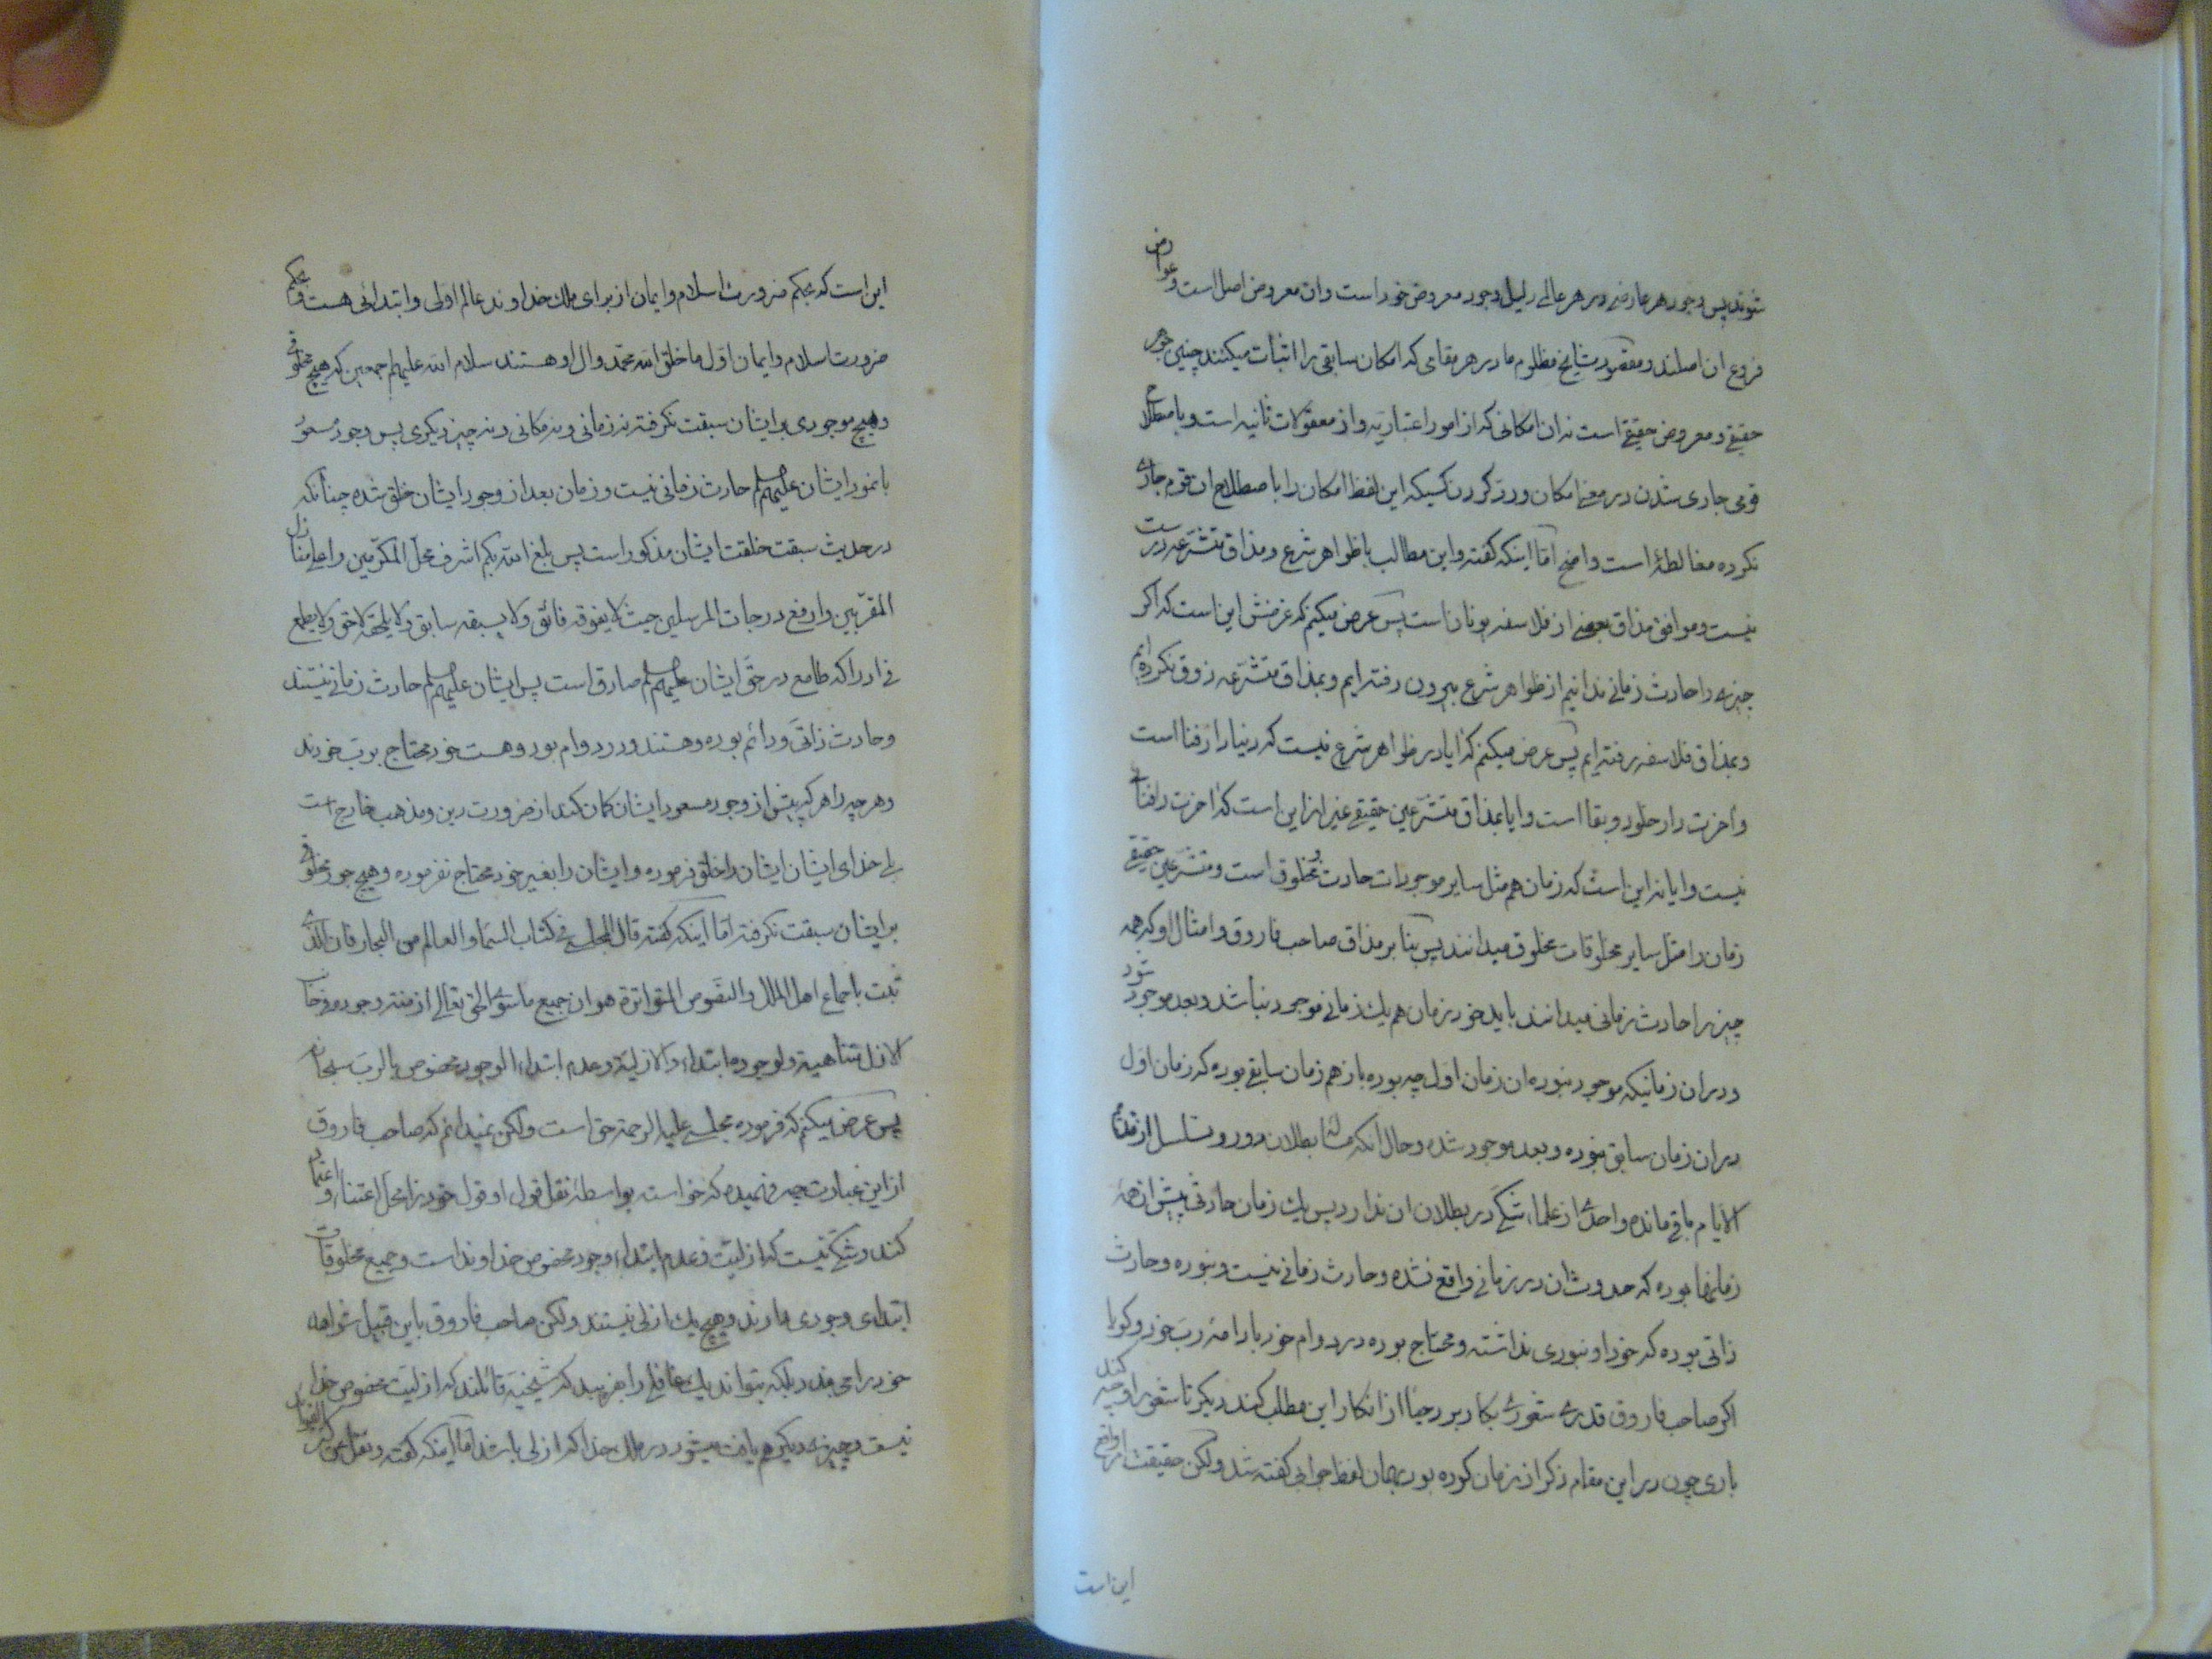 شوند پس وجود هر عارضی در هر عالمی دلیل وجود معروض خود است وان معروض اصل است و عوارض
فروع ان اصلند و مقصود مشایخ مظلوم ما در هر مقامی که امکان سابقی را اثبات میکنند چنین جوهر
حقیقی و معروض حقیقی است نه ان امکانی که از امور اعتباریه و از معقولات ثانیه است و باصطلاح
قومی جاری شدن در معنی امکان و رد کردن کسیکه این لفظ امکان را باصطلاح ان قوم جاری
نکرده مغالطهٔ است واضح اما اینکه گفته و این مطالب با ظواهر شرع و مذاق متشرعه درست
نیست و موافق مذاق بعضی از فلاسفه یونان است پس عرض میکنم که غرضش این است که اگر
چیزی را حادث زمانی ندانیم از ظواهر شرع بیرون رفته ایم و بمذاق متشرعه ذوق نکرده ایم
و بمذاق فلاسفه رفته ایم پس عرض میکنم که ایا در ظواهر شرع نیست که دنیا دار فنا است
و آخرت دار خلود و بقا است و ایا بمذاق متشرعین حقیقی غیر از این است که آخرت را فنائی
نیست و ایا نه این است که زمان هم مثل سایر موجودات حادث و مخلوق است و متشرعین حقیقی
زمان را مثل سایر مخلوقات مخلوق میدانند پس بنا بر مذاق صاحب فاروق و امثال او که همه
چیز را حادث زمانی میدانند باید خود زمان هم یک زمانی موجود نباشد و بعد موجود شود
و در ان زمانیکه موجود نبوده ان زمان اول چه بوده باز هم زمان سابقی بوده که زمان اول
در ان زمان سابق نبوده و بعد موجود شده و حال انکه مسئله بطلان دور و تسلسل از قدیم
الایام باقی مانده و احدی از علماء شکی در بطلان ان ندارد پس یک زمان حادثی پیش از همهٔ
زمانها بوده که حدوث ان در زمانی واقع نشده و حادث زمانی نیست و نبوده و حادث
ذاتی بوده که خود او نبودی نداشته و محتاج بوده در دوام خود بادامهٔ رب خود و گویا
اگر صاحب فاروق قدری شعوری بکار برد حیا از انکار این مطلب کند دیگر تا شعور او چه کند
باری چون در این مقام ذکر از زمان کرده بود بهمان لفظ جوابی گفته شد ولکن حقیقت امر واقع
این است
این است که بحکم ضرورت اسلام و ایمان از برای ملک خداوند عالم اولی و ابتدائی هست و بحکم
ضرورت اسلام و ایمان اول ما خلق الله محمد و ال او هستند سلام الله علیهم اجمعین که هیچ مخلوقی
و هیچ موجودی بر ایشان سبقت نگرفته نه زمانی و نه مکانی و نه چیز دیگری پس وجود مسعود
با نمود ایشان علیهم السلم حادث زمانی نیست و زمان بعد از وجود ایشان خلق شده چنانکه
در حدیث سبقت خلقت ایشان مذکور است پس بلغ الله بکم اشرف محل المکرمین و اعلی منازل
المقربین و ارفع درجات المرسلین حیث لا یفوقه فائق و لا یسبقه سابق و لا یلحقه لاحق و لا یطمع
فی ادراکه طامع در حق ایشان علیهم السلم صادق است پس ایشان علیهم السلم حادث زمانی نیستند
و حادث ذاتی و دائم بوده و هستند و در دوام بود و هست خود محتاج برب خودند
و هر چه را هر که پیش از وجود مسعود ایشان گمان کند از ضرورت دین و مذهب خارج است
بلی خدای ایشان ایشان را خلق فرموده و ایشان را بغیر خود محتاج نفرموده و هیچ موجود مخلوقی
بر ایشان سبقت نگرفته اما اینکه گفته قال المجلسی فی کتاب السماء و العالم من البحار فان الذی
ثبت باجماع اهل الملل والنصوص المتواترة هو ان جمیع ما سوی الحق تعالی ازمنة وجوده فی جانب
الازل متناهیة و لوجوده ابتداء والازلیة و عدم ابتداء الوجود مخصوص بالرب سبحانه
پس عرض میکنم که فرموده مجلسی علیه الرحمة حق است ولکن نمیدانم که صاحب فاروق
از این عبارت چه فهمیده که خواسته بواسطهٔ نقل قول او قول خود را محل اعتناء و اعتماد
کند و شکی نیست که ازلیت و عدم ابتداء وجود مخصوص خداوند است و جمیع مخلوقات
ابتدای وجودی دارند و هیچ یک ازلی نیستند ولکن صاحب فاروق باین قبیل شواهد
خود را می بندد بلکه بتواند یک غافلی را بفریبد که شیخیه قائلند که ازلیت مخصوص خدا
نیست و چیزی دیگر هم یافت میشود در ملک خدا که ازلی باشد اما اینکه گفته و نقل عن